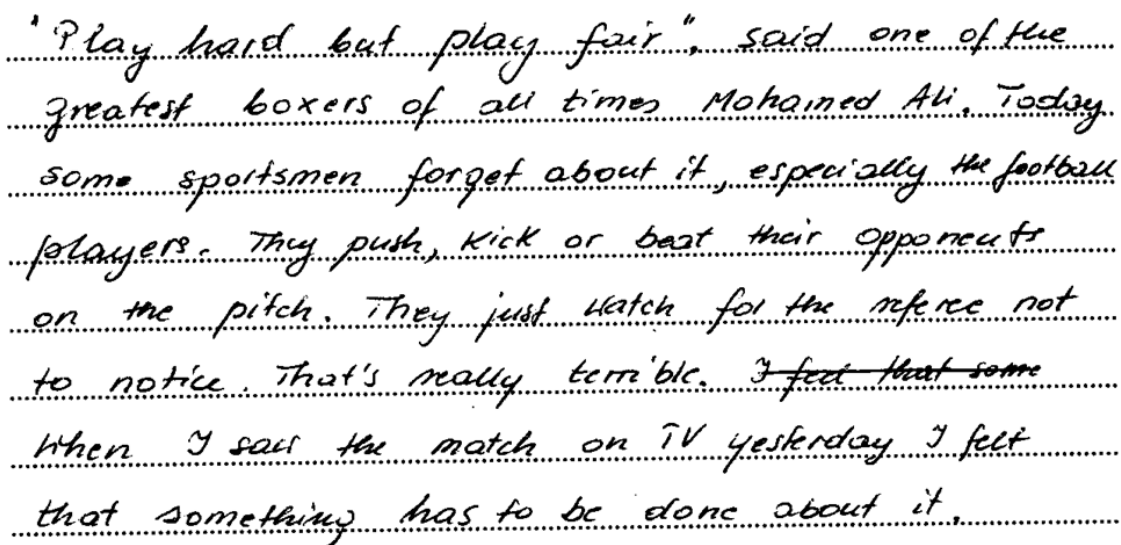 "Play hard but play fair", said one of the
greatest boxers of all times Mohamed Ali. Today
some sportsmen forget about it, especially the football
players. They push, kick or beat their opponents
on the pitch. They just watch for the referee not
to notice. That's really terrible. ~~I feel that some~~
When I saw the match on TV yesterday I felt
that something has to be done about it.